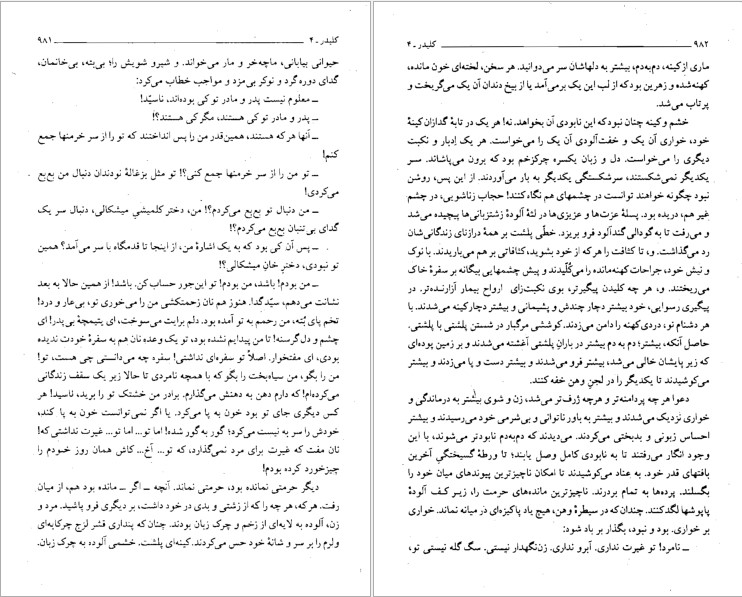 کلیدر ـ ۴ ۹۸۱
حیوانی بیابانی، ماچه‌خر و مار می‌خواند. و شیرو شویش را؛ بی‌بته، بی‌خانمان،
گدای دوره گرد و نوکر بی‌مزد و مواجب خطاب می‌کرد:
ــ معلوم نیست پدر و مادر تو کی بوده‌اند، ناسیّد!
ــ پدر و مادر تو کی هستند، مگر کی هستند؟!
ــ آنها هر که هستند، همین‌قدر من را پس انداختند که تو را از سر خرمنها جمع
کنم!
ــ تو من را از سر خرمنها جمع کنی؟! تو مثل بزغالهٔ نودندان دنبال من بع‌بع
می‌کردی!
ــ من دنبال تو بع‌بع می‌کردم؟! من، دختر کلمیشیِ میشکالی، دنبال سر یک
گدای بی‌تنبان بع‌بع می‌کردم؟!
ــ پس آن کی بود که به یک اشارهٔ من، از اینجا تا قدمگاه با سر می‌آمد؟ همین
تو نبودی، دخترِ خانِ میشکالی؟!
ــ من بودم! باشد، من بودم! تو این‌جور حساب کن. باشد! از همین حالا به بعد
نشانت می‌دهم، سیّد گدا. هنوز هم نان زحمتکشی من را می‌خوری تو، بی‌عار و درد!
تخم پای بُته، من رحمم به تو آمده بود. دلم برایت می‌سوخت، ای یتیمچهٔ بی‌پدر! ای
چشم و دل گرسنه! تا من پیدایم نشده بود، تو یک وعده نان هم به سفرهٔ خودت ندیده
بودی، ای مفتخوار. اصلاً تو سفره‌ای نداشتی! سفره چه می‌دانستی چی هست، تو!
من را بگو، من سیاه‌بخت را بگو که با همچه نامردی تا حالا زیر یک سقف زندگانی
می‌کرده‌ام! که دارم دهن به دهنش می‌گذارم. برادر من خشتک تو را برید، ناسید! هر
کس دیگری جای تو بود خون به پا می‌کرد. یا اگر نمی‌توانست خون به پا کند،
خودش را سر به نیست می‌کرد؛ گور به گور شده! اما تو... اما تو... غیرت نداشتی که!
نان مفت که غیرت برای مرد نمی‌گذارد، که تو... آخ... کاش همان روز خودم را
چیزخورد کرده بودم!
دیگر حرمتی نمانده بود، حرمتی نماند. آنچه ــ اگر ــ مانده بود هم، از میان
رفت. هر که، هر چه را که از زشتی و بدی در خود داشت، بر دیگری فرو پاشید. مرد و
زن، آلوده به لایه‌ای از زخم و چرک زبان بودند. چنان که پنداری قشر لزج چرکابه‌ای
ولرم را بر سر و شانهٔ خود حس می‌کردند. کینه‌ای پلشت. خشمی آلوده به چرک زبان.
۹۸۲ کلیدر ـ ۴
ماری از کینه، دم‌به‌دم، بیشتر به دلهاشان سر می‌دوانید. هر سخن، لخته‌ای خون مانده،
کهنه‌شده و زهرین بود که از لب این یک برمی‌آمد یا از بیخ دندان آن یک می‌گریخت و
پرتاب می‌شد.
خشم و کینه چنان نبود که این نابودی آن بخواهد. نه! هر یک در تابهٔ گدازان کینهٔ
خود، خواری آن یک و خفت‌آلودی آن یک را می‌خواست. هر یک اِدبار و نکبت
دیگری را می‌خواست. دل و زبان یکسره چرکزخم بود که برون می‌پاشاند. سر
یکدیگر نمی‌شکستند، سرشکستگی یکدیگر به بار می‌آوردند. از این پس، روشن
نبود چگونه خواهند توانست در چشمهای هم نگاه کنند! حجاب زناشویی، در چشم
غیر هم، دریده بود. پسلهٔ عزت‌ها و عزیزی‌ها در لتهٔ آلودهٔ زشتزبانی‌ها پیچیده می‌شد
و می‌رفت تا به گودالی گندآلود فرو بریزد. خطّی پلشت بر همهٔ درازنای زندگانی‌شان
رد می‌گذاشت. و، تا کثافت را هر که از خود بشوید، کثافاتی بر هم می‌باریدند. با نوک
و نیش خود، جراحات کهنه‌مانده را می‌کُلّیدند و پیش چشمهایی بیگانه بر سفرهٔ خاک
می‌ریختند. و، هر چه کلیدن پیگیرتر، بوی نکبت‌زای ارواح بیمار آزارنده‌تر. در
پیگیری رسوایی، خود بیشتر دچار چندش و پشیمانی و بیشتر دچار کینه می‌شدند. با
هر دشنام نو، دردی کهنه را دامن می‌زدند. کوششی مرگبار در شستن پلشتی با پلشتی.
حاصل آنکه، بیشتر؛ دم به دم بیشتر در باران پلشتی آغشته می‌شدند و بر زمین پوده‌ای
که زیر پایشان خالی می‌شد، بیشتر فرو می‌شدند و بیشتر دست و پا می‌زدند و بیشتر
می‌کوشیدند تا یکدیگر را در لجنِ وهن خفه کنند.
دعوا هر چه پردامنه‌تر و هرچه ژرف‌تر می‌شد، زن و شوی بیشتر به درماندگی و
خواری نزدیک می‌شدند و بیشتر به باور ناتوانی و بی‌شرمی خود می‌رسیدند و بیشتر
احساس زبونی و بدبختی می‌کردند. می‌دیدند که دم‌به‌دم نابودتر می‌شوند، با این
وجود انگار می‌رفتند تا به نابودی کامل وصل یابند؛ تا ورطهٔ گسیختگیِ آخرین
بافتهای قدر خود. به عناد می‌کوشیدند تا امکان ناچیزترین پیوندهای میان خود را
بگسلند. پرده‌ها به تمام بردرند. ناچیزترین مانده‌های حرمت را، زیر کف آلودهٔ
پاپوشها لگد کنند. چندان که در سیطرهٔ وهن، هیچ یاد پاکیزه‌ای در میانه نماند. خواری
بر خواری. بود و نبود، بگذار بر باد شود:
ــ نامرد! تو غیرت نداری. آبرو نداری. زن‌نگهدار نیستی. سگ گله نیستی تو،